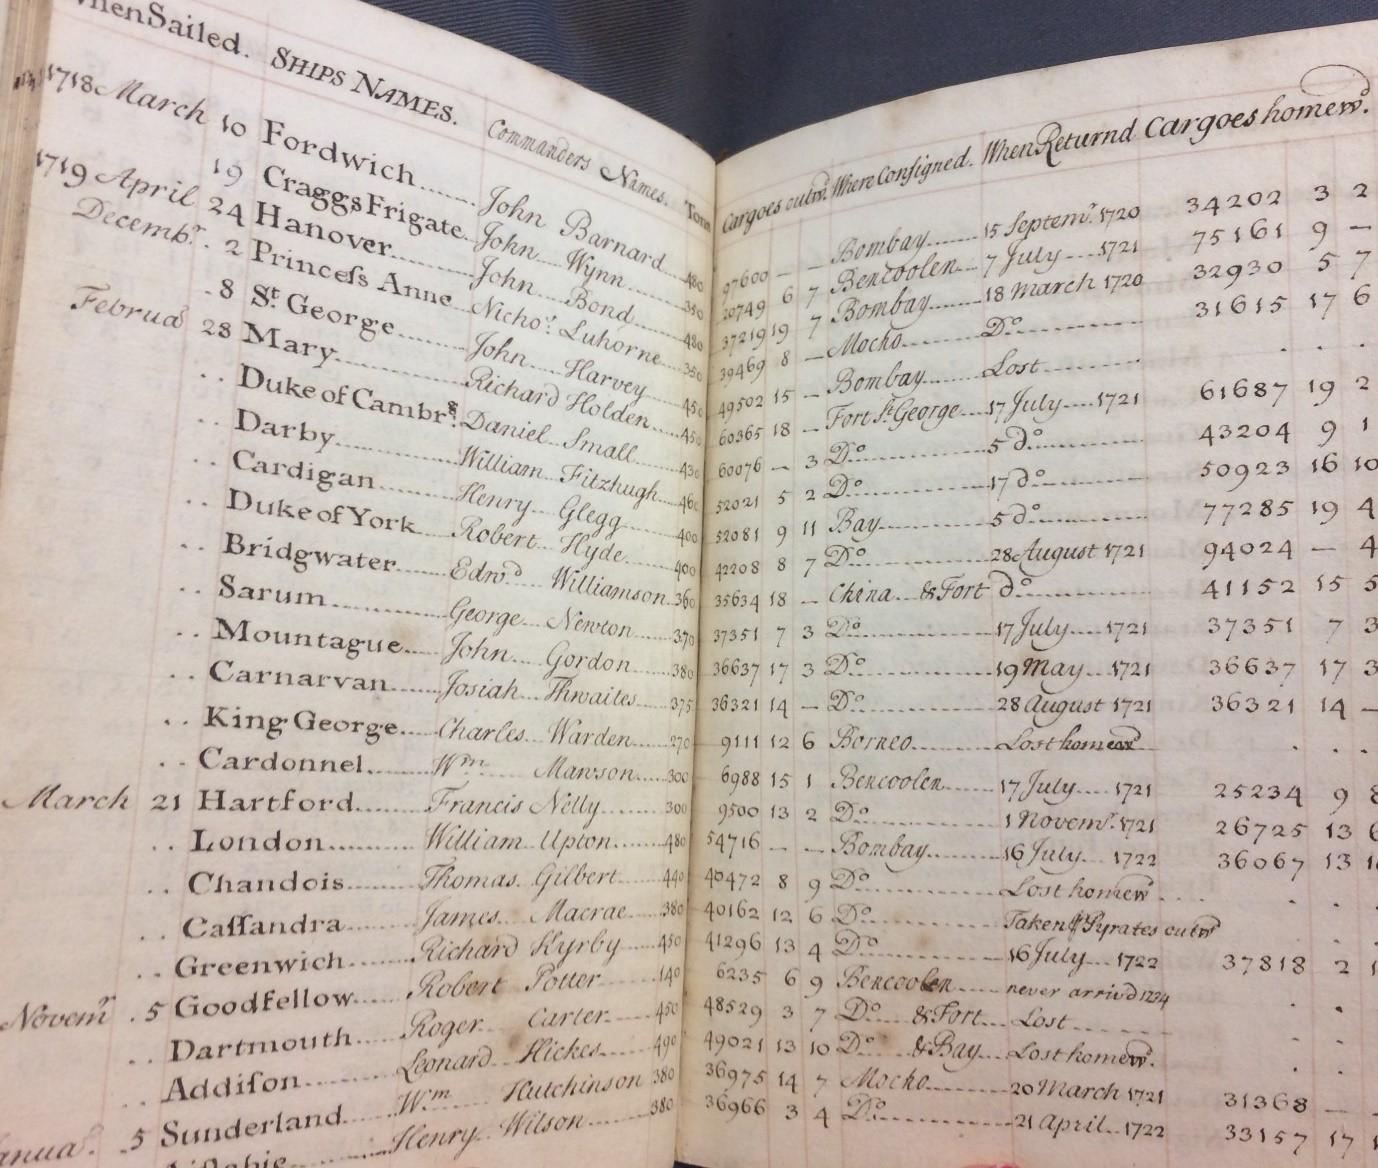 When Sailed. SHIPS NAMES. Commanders Names. Tonn
1718 March 10 Fordwich John Barnard 480
19 Craggs Frigate John Wynn 350
1719 April 24 Hanover John Bond 480
Decembr. 2 Princeſs Anne Nichos. Luhorne 350
8 St. George John Harvey 450
Februa 28 Mary Richard Holden 450
.. Duke of Cambr. Daniel Small 430
.. Darby William Fitzhugh 460
.. Cardigan Henry Glegg 400
.. Duke of York Robert Hyde 400
.. Bridgwater Edwd. Williamson 360
.. Sarum George Newton 370
.. Mountague John Gordon 380
.. Carnarvan Josiah Thwaites 375
.. King George Charles Warden 270
.. Cardonnel Wm. Mawson 300
March 21 Hartford Francis Nelly 300
.. London William Upton 480
.. Chandois Thomas Gilbert 440
.. Caſſandra James Macrae 380
.. Greenwich Richard Kyrby 450
Novemr. 5 Goodfellow Robert Potter 140
.. Dartmouth Roger Carter 450
.. Addiſon Leonard Hickes 490
.. Sunderland Wm. Hutchinson 380
5 Henry Wilson 380
Cargoes outwd. Where Conſigned. When Returnd Cargoes homewd.
97600 — — Bombay 15 Septemr. 1720 34202 3 2
20749 6 7 Bencoolen 7 July 1721 75161 9 —
37219 19 7 Bombay 18 March 1720 32930 5 7
39469 8 — Mocho Do. 31615 17 6
49502 15 — Bombay Lost . . .
60365 18 — Fort St. George 17 July 1721 61687 19 2
60076 — 3 Do. 5 do. 43204 9 1
52021 5 2 Do. 17 do. 50923 16 10
52081 9 11 Bay 5 do. 77285 19 4
42208 8 7 Do. 28 August 1721 94024 — 4
35634 18 — China & Fort do. 41152 15 5
37351 7 3 Do. 17 July 1721 37351 7 3
36637 17 3 Do. 19 May 1721 36637 17 3
36321 14 — Do. 28 August 1721 36321 14 —
9111 12 6 Borneo Lost homewd . . .
6988 15 1 Bencoolen 17 July 1721 25234 9 8
9500 13 2 Do. 1 Novemr. 1721 26725 13 6
54716 — — Bombay 16 July 1722 36067 13
40472 8 9 Do. Lost homewd . . .
40162 12 6 Do. Taken Pyrates outwd
41296 13 4 Do. 16 July 1722 37818 2
6235 6 9 Bencoolen never arriv'd 1724
48529 3 7 Do. & Fort Lost
49021 13 10 Do. & Bay Lost homewd.
36975 14 7 Mocho 20 March 1721 31368 —
36966 3 4 Do. 21 April 1722 33157 17